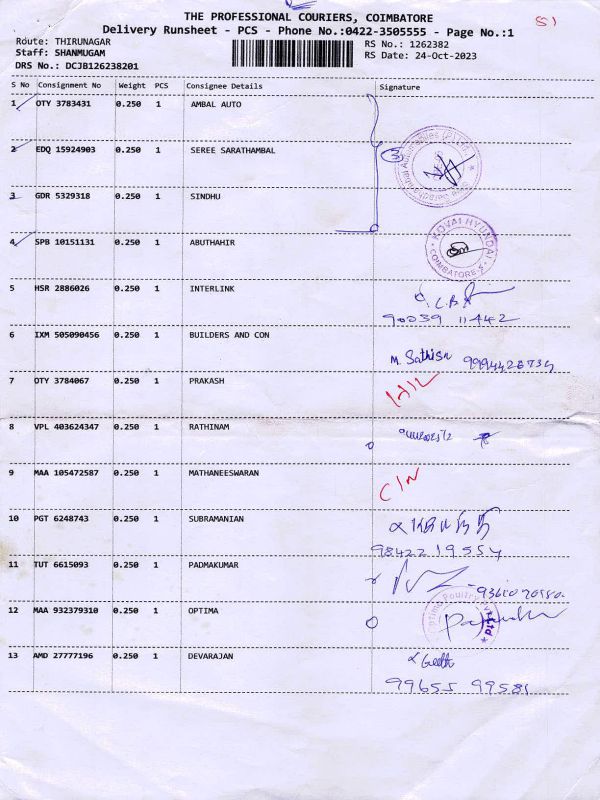 THE PROFESSIONAL COURIERS, COIMBATORE
51
Delivery Runsheet - PCS - Phone No.:0422-3505555 - Page No.:1
Route: THIRUNAGAR
RS No.: 1262382
Staff: SHANMUGAM
RS Date: 24-Oct-2023
DRS No.: DCJB126238201
S No Consignment No Weight PCS Consignee Details Signature
1 OTY 3783431 0.250 1 AMBAL AUTO
2 EDQ 15924903 0.250 1 SEREE SARATHAMBAL
3 GDR 5329318 0.250 1 SINDHU
4 SPB 10151131 0.250 1 ABUTHAHIR
KOVAI HYUNDAI
COIMBATORE
5 HSR 2886026 0.250 1 INTERLINK
90039 11442
6 IXM 505090456 0.250 1 BUILDERS AND CON
M. Sathish
7 OTY 3784067 0.250 1 PRAKASH
8 VPL 403624347 0.250 1 RATHINAM
9 MAA 105472587 0.250 1 MATHANEESWARAN
10 PGT 6248743 0.250 1 SUBRAMANIAN
98422 19554
11 TUT 6615093 0.250 1 PADMAKUMAR
12 MAA 932379310 0.250 1 OPTIMA
13 AMD 27777196 0.250 1 DEVARAJAN
99655 99581